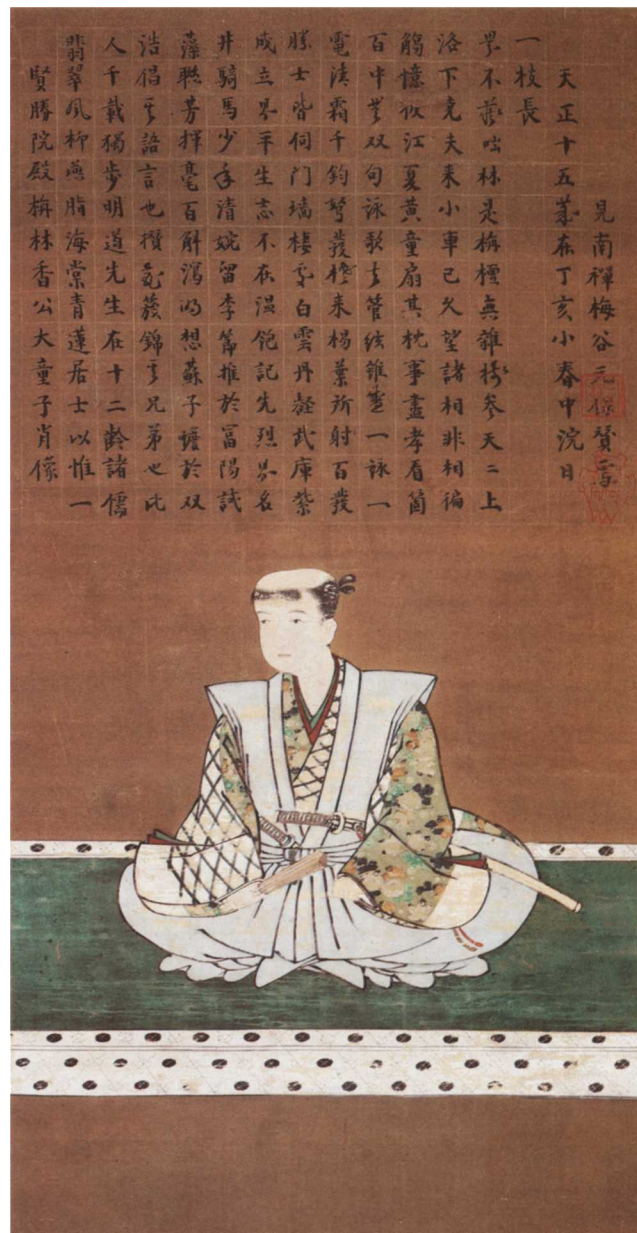 賢勝院殿栴林香公大童子肖像
翡翠風柳燕脂海棠青蓮居士以惟一
人千載獨步明道先生在十二齡諸儒
浩倡吾語言也攢花簇錦吾兄弟也比
藻聯芳揮毫百斛瀉的想蘇子蟾於双
井騎馬少年清婉留李篇推於富陽試
成立男平生志不在温飽記先烈男名
勝士皆伺門墻棲雪白雲丹凝武庫紫
電清霜千鈞弩發機来楊葉所射百發
百中無双句詠歌管絃雖壹一詠一
觴憶似江夏黄童扇其枕事盡孝看箇
洛下堯夫来小車已久望諸相非相徧
界不藏咄林是栴檀無雜樹參天二上
一枝長
天正十五載在丁亥小春中浣日
見南禪梅谷元保賛焉